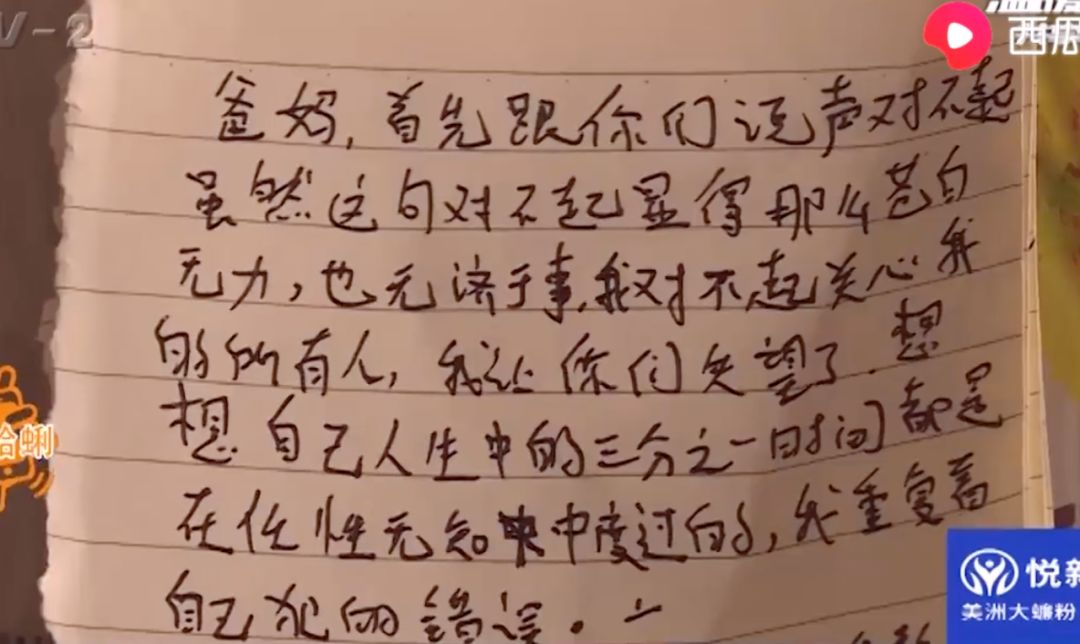 V-2
西瓜
爸妈,首先跟你们说声对不起
虽然这句对不起显得那么苍白
无力,也无济于事,我对不起关心我
的所有人,我让你们失望了.想
想自己人生中的三分之一时间都是
蛤蜊
在任性无知中度过的,我重复着
自己犯的错误.
悦新
美洲大蠊粉